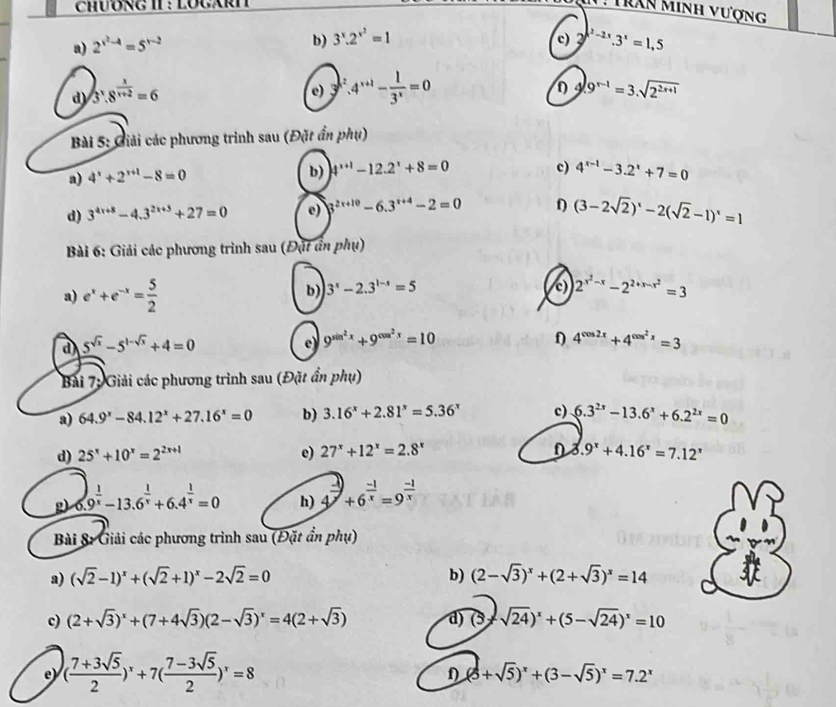 CHƯƠNG II : LOGARIT
TRẦN MINH VƯỢNG
a) 2^{x²−4} = 5^{x−2} b) 3^x.2^{x²} = 1 c) 2^{x²−2x}.3^x = 1,5
d) 3^x.8^{x/(x+2)} = 6 e) 3^{x²}.4^{x+1} − 1/3^x = 0 f) 4.9^{x−1} = 3.√(2^{2x+1})
Bài 5: Giải các phương trình sau (Đặt ẩn phụ)
a) 4^x + 2^{x+1} − 8 = 0 b) 4^{x+1} − 12.2^x + 8 = 0 c) 4^{x−1} − 3.2^x + 7 = 0
d) 3^{4x+8} − 4.3^{2x+5} + 27 = 0 e) 3^{2x+10} − 6.3^{x+4} − 2 = 0 f) (3−2√2)^x − 2(√2−1)^x = 1
Bài 6: Giải các phương trình sau (Đặt ẩn phụ)
a) e^x + e^{−x} = 5/2 b) 3^x − 2.3^{1−x} = 5 c) 2^{x²−x} − 2^{2+x−x²} = 3
d) 5^{√x} − 5^{1−√x} + 4 = 0 e) 9^{sin²x} + 9^{cos²x} = 10 f) 4^{cos2x} + 4^{cos²x} = 3
Bài 7: Giải các phương trình sau (Đặt ẩn phụ)
a) 64.9^x − 84.12^x + 27.16^x = 0 b) 3.16^x + 2.81^x = 5.36^x c) 6.3^{2x} − 13.6^x + 6.2^{2x} = 0
d) 25^x + 10^x = 2^{2x+1} e) 27^x + 12^x = 2.8^x f) 3.9^x + 4.16^x = 7.12^x
g) 6.9^{1/x} − 13.6^{1/x} + 6.4^{1/x} = 0 h) 4^{−1/x} + 6^{−1/x} = 9^{−1/x}
Bài 8: Giải các phương trình sau (Đặt ẩn phụ)
a) (√2−1)^x + (√2+1)^x − 2√2 = 0 b) (2−√3)^x + (2+√3)^x = 14
c) (2+√3)^x + (7+4√3)(2−√3)^x = 4(2+√3) d) (5+√24)^x + (5−√24)^x = 10
e) ((7+3√5)/2)^x + 7((7−3√5)/2)^x = 8 f) (3+√5)^x + (3−√5)^x = 7.2^x